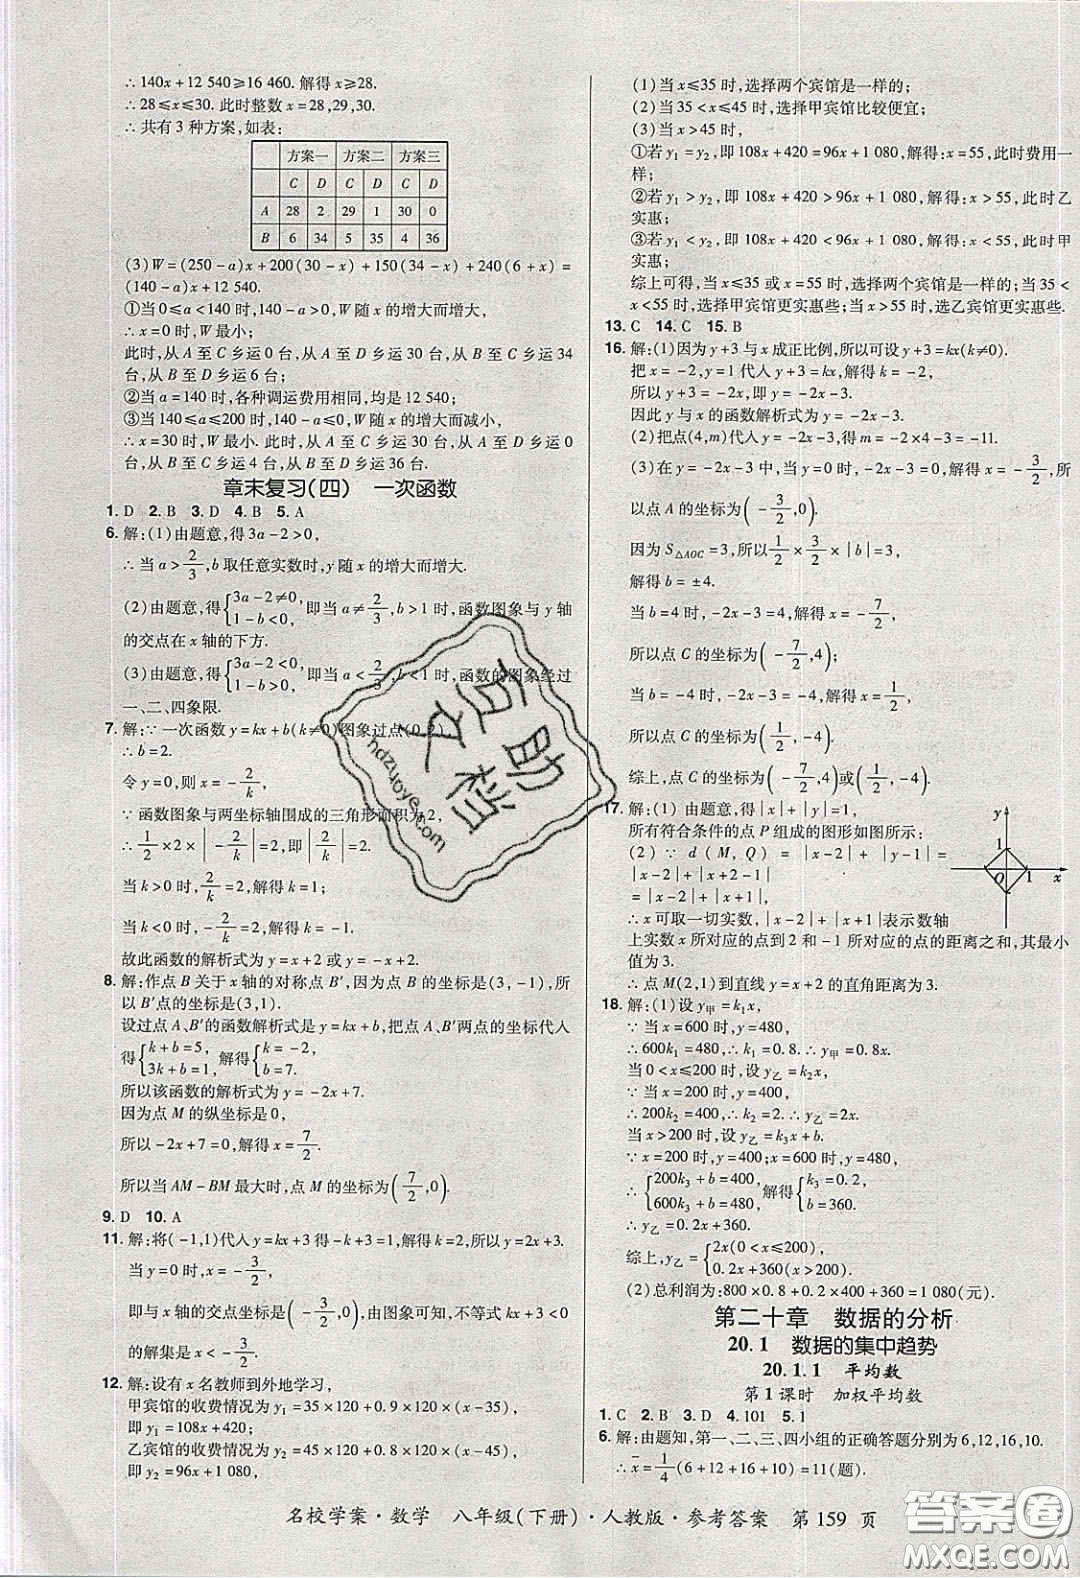 ∴ 140x+12 540≥16 460. 解得 x≥28.
∴ 28≤x≤30. 此时整数 x=28,29,30.
∴ 共有 3 种方案,如表:
方案一 方案二 方案三
C D C D C D
A 28 2 29 1 30 0
B 6 34 5 35 4 36
(3) W=(250-a)x+200(30-x)+150(34-x)+240(6+x)=
(140-a)x+12 540.
①当 0≤a<140 时,140-a>0,W 随 x 的增大而增大,
∴ x=0 时,W 最小;
此时,从 A 至 C 乡运 0 台,从 A 至 D 乡运 30 台,从 B 至 C 乡运 34
台,从 B 至 D 乡运 6 台;
②当 a=140 时,各种调运费用相同,均是 12 540;
③当 140≤a≤200 时,140-a<0,W 随 x 的增大而减小,
∴ x=30 时,W 最小. 此时,从 A 至 C 乡运 30 台,从 A 至 D 乡运 0
台,从 B 至 C 乡运 4 台,从 B 至 D 乡运 36 台.
章末复习(四) 一次函数
1. D 2. B 3. D 4. B 5. A
6. 解:(1)由题意,得 3a-2>0,
∴ 当 a>2/3,b 取任意实数时,y 随 x 的增大而增大.
(2)由题意,得{3a-2≠0, 1-b<0, 即当 a≠2/3,b>1 时,函数图象与 y 轴
的交点在 x 轴的下方.
(3)由题意,得{3a-2<0, 1-b>0, 即当 a<2/3,b<1 时,函数的图象经过
一、二、四象限.
7. 解:∵ 一次函数 y=kx+b(k≠0)图象过点(0,2),
∴ b=2.
令 y=0,则 x=-2/k,
∵ 函数图象与两坐标轴围成的三角形面积为 2,
∴ 1/2×2×|-2/k|=2,即|-2/k|=2.
当 k>0 时,2/k=2,解得 k=1;
当 k<0 时,-2/k=2,解得 k=-1.
故此函数的解析式为 y=x+2 或 y=-x+2.
8. 解:作点 B 关于 x 轴的对称点 B′,因为点 B(3,-1),所
以 B′点的坐标是(3,1).
设过点 A、B′的函数解析式是 y=kx+b,把点 A、B′两点的坐标代入
得{k+b=5, 3k+b=1, 解得{k=-2, b=7.
所以该函数的解析式为 y=-2x+7.
因为点 M 的纵坐标是 0,
所以-2x+7=0,解得 x=7/2.
所以当 AM-BM 最大时,点 M 的坐标为(7/2,0).
9. D 10. A
11. 解:将(-1,1)代入 y=kx+3 得-k+3=1,解得 k=2,所以 y=2x+3.
当 y=0 时,x=-3/2,
即与 x 轴的交点坐标是(-3/2,0),由图象可知,不等式 kx+3<0
的解集是 x<-3/2.
12. 解:设有 x 名教师到外地学习,
甲宾馆的收费情况为 y₁=35×120+0.9×120×(x-35),
即 y₁=108x+420;
乙宾馆的收费情况为 y₂=45×120+0.8×120×(x-45),
即 y₂=96x+1 080,
(1)当 x≤35 时,选择两个宾馆是一样的;
(2)当 35<x≤45 时,选择甲宾馆比较便宜;
(3)当 x>45 时,
①若 y₁=y₂,即 108x+420=96x+1 080,解得:x=55,此时费用一
样;
②若 y₁>y₂,即 108x+420>96x+1 080,解得:x>55,此时乙
实惠;
③若 y₁<y₂,即 108x+420<96x+1 080,解得:x<55,此时甲
实惠;
综上可得,当 x≤35 或 x=55 时,选择两个宾馆是一样的;当 35
<x<55 时,选择甲宾馆更实惠些;当 x>55 时,选乙宾馆更实惠些.
13. C 14. C 15. B
16. 解:(1)因为 y+3 与 x 成正比例,所以可设 y+3=kx(k≠0).
把 x=-2,y=1 代入 y+3=kx,解得 k=-2,
所以 y+3=-2x,即 y=-2x-3.
因此 y 与 x 的函数解析式为 y=-2x-3.
(2)把点(4,m)代入 y=-2x-3,得 m=-2×4-3=-11.
(3)在 y=-2x-3 中,当 y=0 时,-2x-3=0,解得 x=-3/2,
所以点 A 的坐标为(-3/2,0).
因为 S△AOC=3,所以 1/2×3/2×|b|=3,
解得 b=±4.
当 b=4 时,-2x-3=4,解得 x=-7/2,
所以点 C 的坐标为(-7/2,4);
当 b=-4 时,-2x-3=-4,解得 x=1/2,
所以点 C 的坐标为(1/2,-4).
综上,点 C 的坐标为(-7/2,4)或(1/2,-4).
17. 解:(1)由题意,得|x|+|y|=1,
所有符合条件的点 P 组成的图形如图所示:
(2) ∵ d(M,Q)=|x-2|+|y-1|=
|x-2|+|x+2-1|
=|x-2|+|x+1|,
∴ x 可取一切实数,|x-2|+|x+1|表示数轴
上实数 x 所对应的点到 2 和-1 所对应的点的距离之和,其最小
值为 3.
∴ 点 M(2,1)到直线 y=x+2 的直角距离为 3.
y
1
O 1 x
18. 解:(1)设 y甲=k₁x,
∵ 当 x=600 时,y=480,
∴ 600k₁=480,∴ k₁=0.8. ∴ y甲=0.8x.
当 0<x≤200 时,设 y乙=k₂x,
∵ 当 x=200 时,y=400,
∴ 200k₂=400,∴ k₂=2. ∴ y乙=2x.
当 x>200 时,设 y乙=k₃x+b,
∵ x=200 时,y=400;x=600 时,y=480,
∴ {200k₃+b=400, 600k₃+b=480, 解得{k₃=0.2, b=360.
∴ y乙=0.2x+360.
综上,y乙={2x(0<x≤200), 0.2x+360(x>200).
(2)总利润为:800×0.8+400×0.2+360=1 080(元).
第二十章 数据的分析
20.1 数据的集中趋势
20.1.1 平均数
第 1 课时 加权平均数
1. C 2. B 3. D 4. 101 5. 1
6. 解:由题知,第一、二、三、四小组的正确答题分别为 6,12,16,10.
∴ x̄=1/4(6+12+16+10)=11(题).
名校学案·数学 八年级(下册)·人教版·参考答案 第 159 页
答案圈
MXQE.COM